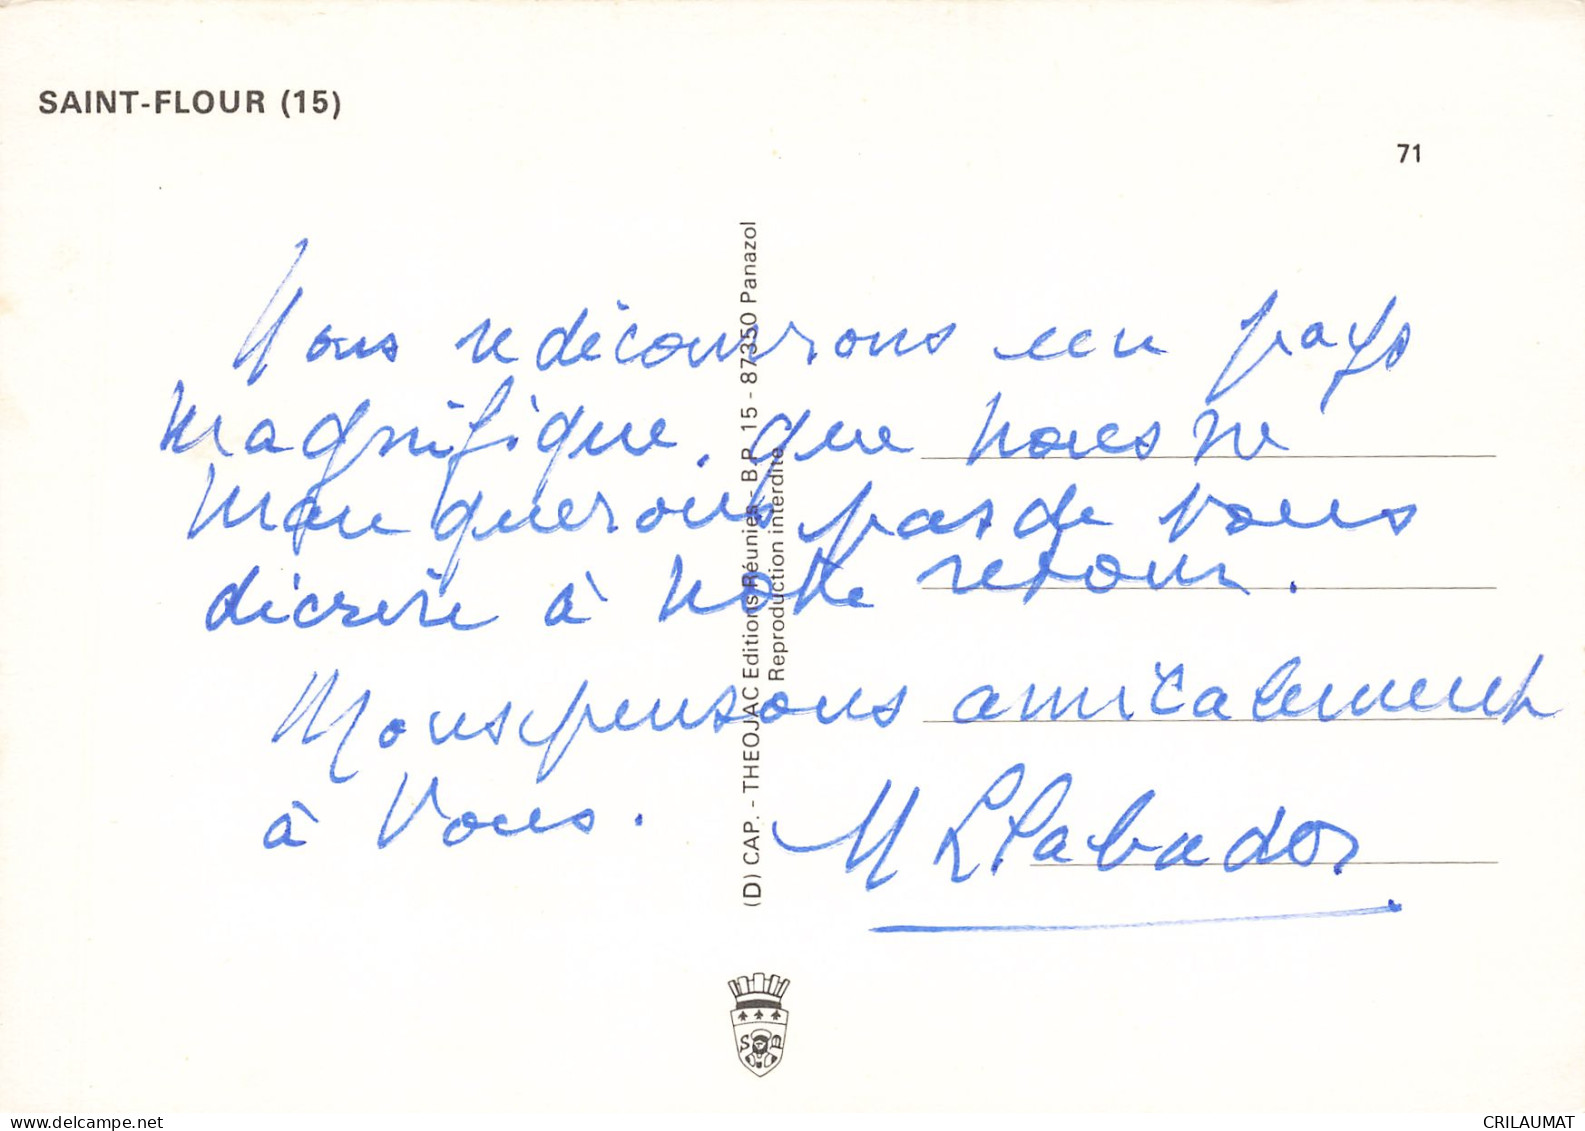 SAINT-FLOUR (15)
71
Nous redécouvrons un pays
magnifique, que nous ne
manquerons pas de vous
décrire à notre retour.
Nous pensons amicalement
à Vous. M
(D) CAP. - THEOJAC Editions Réunies - B.P. 15 - 87350 Panazol
Reproduction interdite
S
delcampe.net
CRILAUMAT